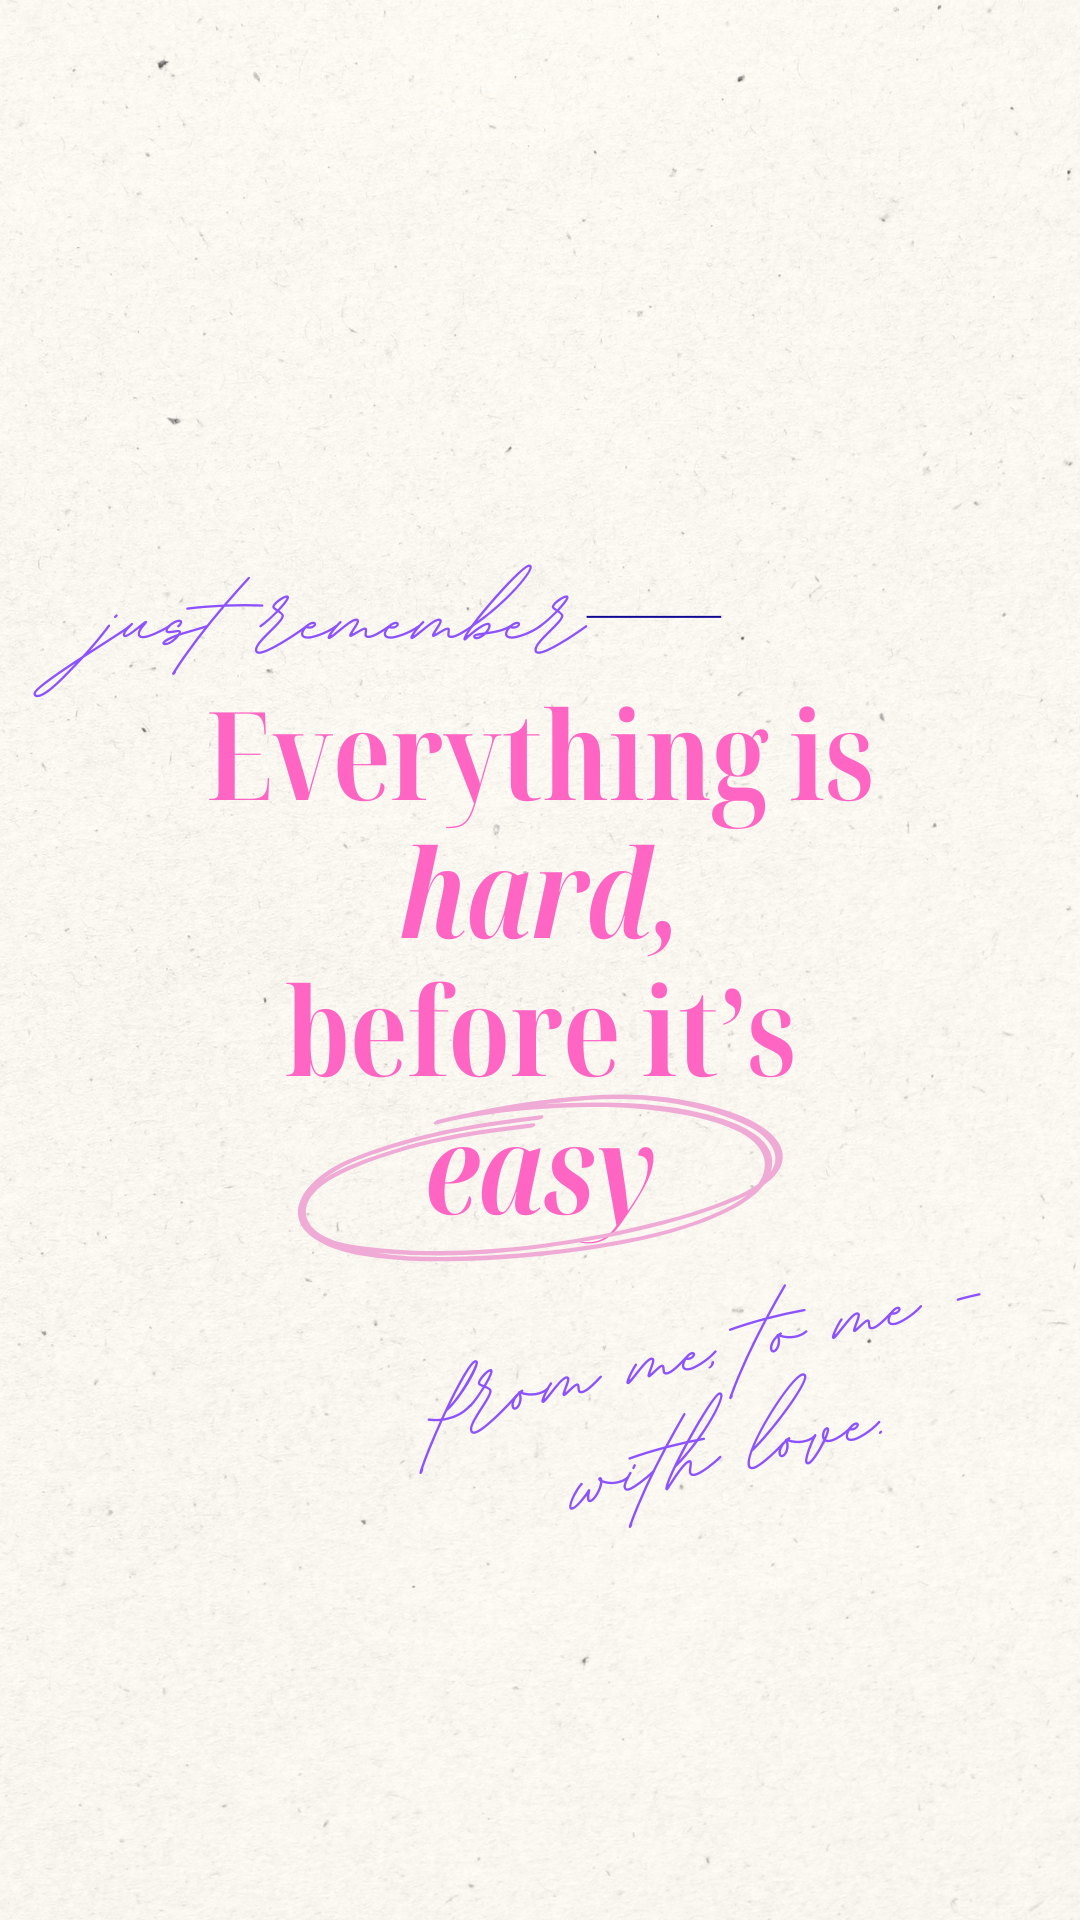 just remember
Everything is
hard,
before it’s
easy
from me, to me -
with love.